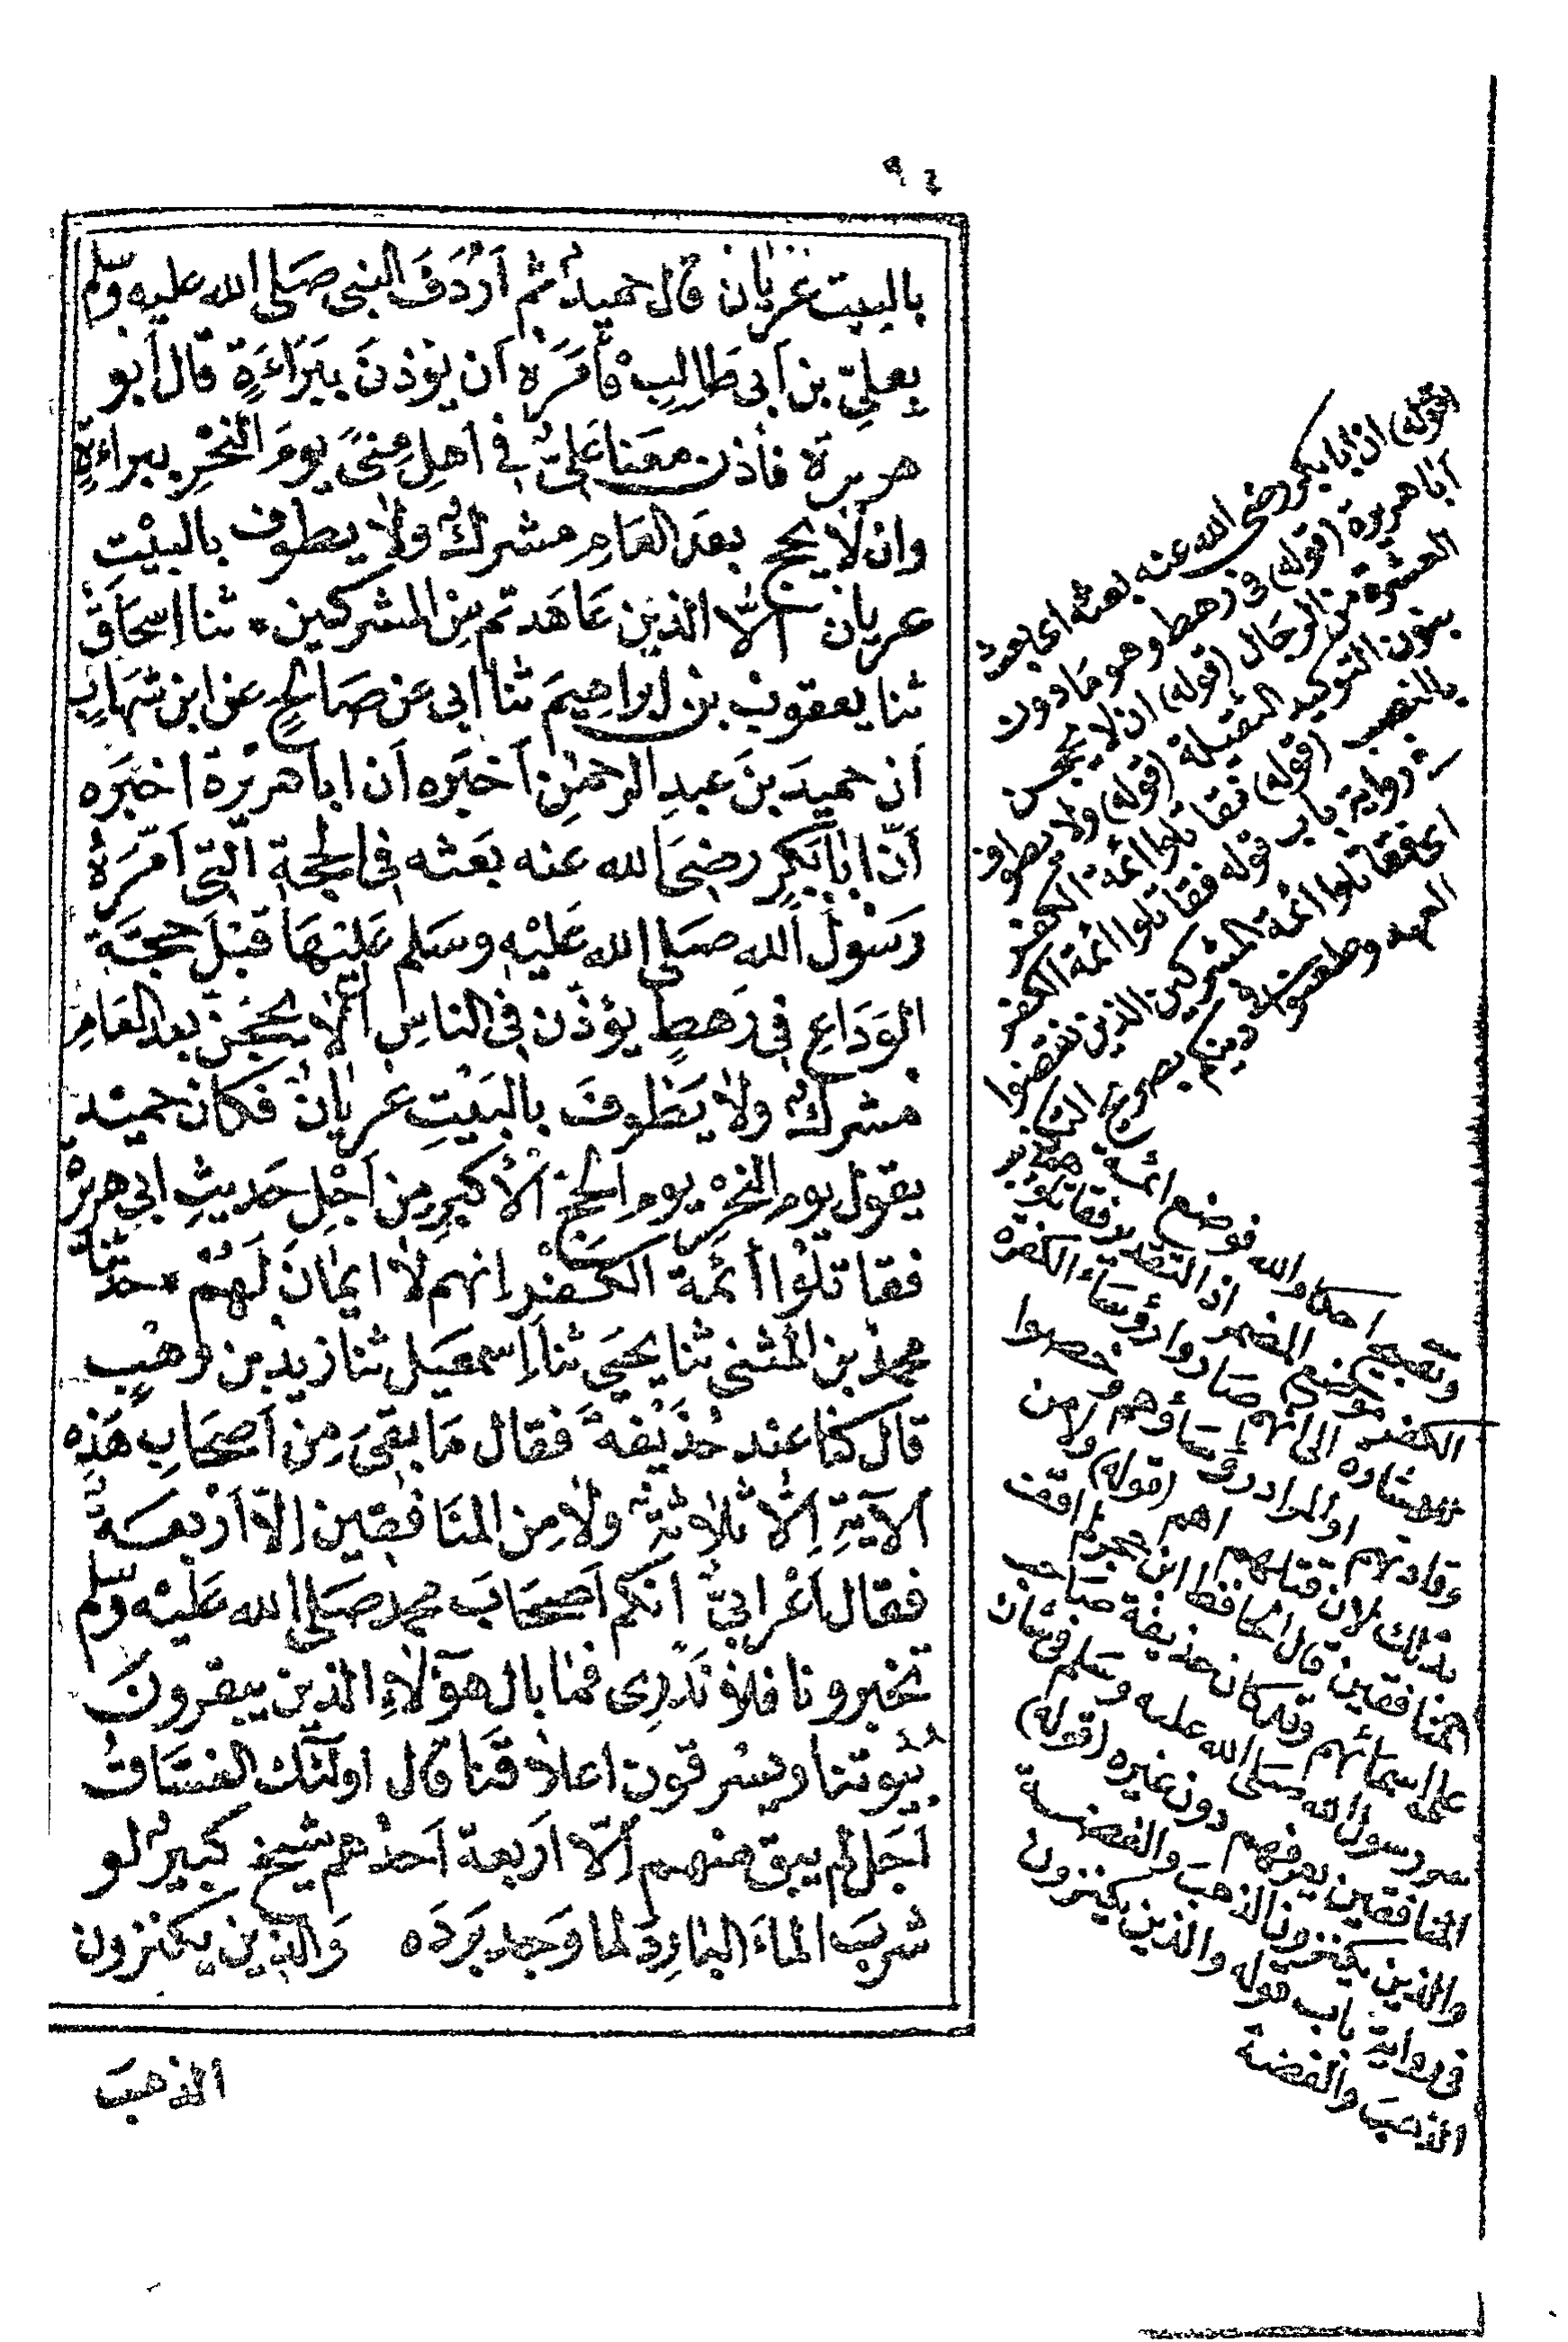 ٩٤
بالبيت عريان قال حميد ثم اَرْدَفَ النبي صَلى الله عليه وسلم
بِعلىِّ بن اَبى طَالِبٍ فأمَرَهُ اَن يؤذنَ بِبَرَاءَةٍ قال أبو
هريرة فأذن معَنا عَلىٌّ في اَهلِ مِنىً يومَ النحْرِ ببراءةٍ
وان لا يحج بعدَ العَامِ مشركٌ ولا يطوف بالبيْت
عريان اِلّا الذين عَاهَدتم مِن المشركين ثنا اِسحَاقُ
ثنا يعقوب بن اِبراهِيمَ ثنا ابى عن صَالحٍ عن ابن شهَابٍ
اَن حميدَ بنَ عبدِ الرحمٰنِ اَخبَره اَن ابا هريْرة اخبَره
اَنّ ابا بَكرٍ رضىَ الله عنه بعَثه في الحجة التى اَمَّرَهُ
رَسُولُ الله صَلى الله عَليْه وسَلم عَليْهَا قبْل حجَّةِ
الوَدَاعِ في رَهطٍ يؤذّن في الناسِ اَلّا يحجّنّ بعد العَامِ
مشركٌ ولا يَطُوفَ بالبَيْتِ عريانٌ فكان حميْد
يقول يوم النحْرِ يوم الحجّ الأكبرِ مِن اَجْلِ حَديثِ ابى هريْرة
فقاتلُوا أئمّة الكُفْرِ اِنهم لا ايمانَ لَهُمْ حَدثنا
محمدُ بن المثنى ثنا يحيَى ثنا اِسمعيل ثنا زيد بن وَهْبٍ
قال كنا عند حُذَيْفةَ فقال مَا بقىَ مِن اَصحَابِ هَذِه
الآيَةِ اِلّا ثلاثةٌ ولا مِن المنَافِقين اِلاّ اَرْبعَةٌ
فقال اَعْرابىٌّ انكم اَصحَابَ محمد صَلى الله عَليْه وسلم
تخبرونا فلا نَدْرِى فمَا بال هؤلاءِ الذين يبقرونَ
بُيُوتنا ويسْرقون اعلاقنَا قال اولئك الفسَّاقُ
اَجَل لم يبق منهم اِلّا اَربعة اَحدُهم شيخ كبيرٌ لو
شربَ الماءَ البَاردَ لما وَجد بَردَه وَالذين يكنزون
الذهبَ
(قوله) ان ابا بكر رضى الله عنه بعثه اى بعث
اَبا هريرة (قوله) في رَهط وهو مَا دون
العشرة من الرجَال (قوله) ان لا يحجن
بنون التوكيد الثقيلة (قوله) ولا يطوف
بالنصب (قوله) فقاتلوا ائمة الكفر
رواية باب قوله فقاتلوا ائمة الكفر
اى فقاتلوا ائمة المشركين الذين نقضوا
العهد وطعنوا في دينكم بصريح
فوضع ائمة
الكفر موضع المضمر اذ التقدير فقاتلوهم
للاشارة الى انهم صَاروا رؤسَاء الكفرة
وقادتهم او المراد رؤسَاؤهم وخصوا
بذلك لان قتلهم اهم (قوله) ولا من
المنافقين قال الحافظ ابن حجر لم اقف
على اسمائهم وقد كان حذيفة صَاحب
سر رسول الله صَلى الله عليه وسَلم في شان
المنافقين يعرفهم دون غيره (قوله)
والذين يكنزون الذهبَ والفضة
في رواية باب قوله والذين يكنزون
الذهبَ والفضة